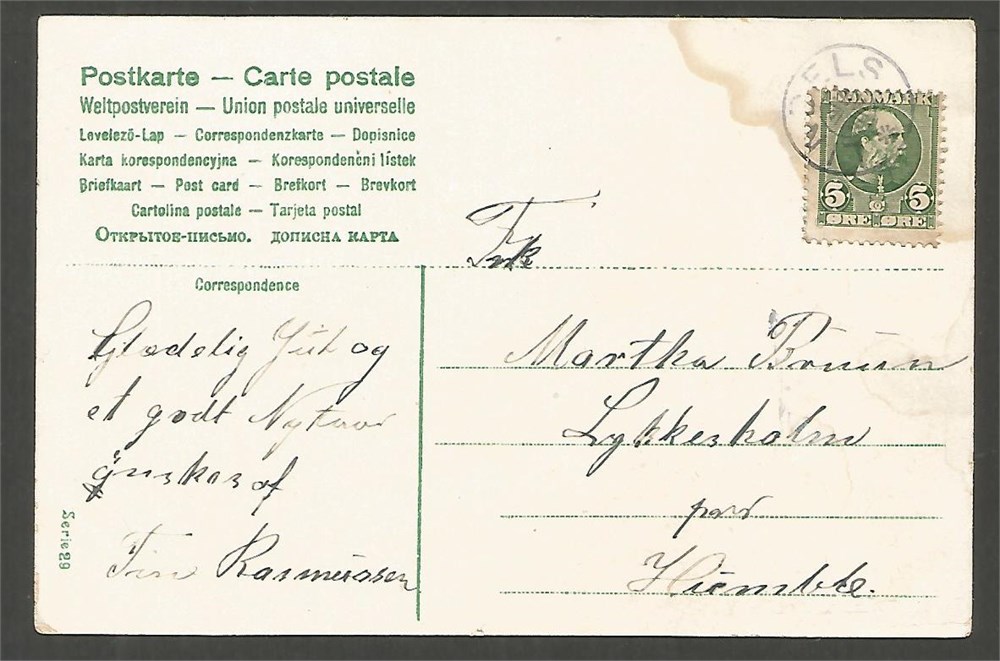 Postkarte — Carte postale
Weltpostverein — Union postale universelle
Levelező-Lap — Correspondenzkarte — Dopisnice
Karta korespondencyjna — Korespondenční lístek
Briefkaart — Post card — Brefkort — Brevkort
Cartolina postale — Tarjeta postal
Открытое-письмо. дописна карта
DANMARK
5 5
ØRE ØRE
Frk
Correspondence
Glædelig Jul og
et godt Nytaar
ønskes af
Rasmussen
Martha Bruun
Lykkesholm
paa
Humble.
Serie 29